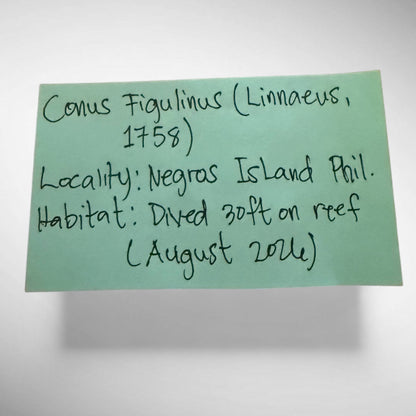 Conus Figulinus (Linnaeus,
1758)
Locality: Negros Island Phil.
Habitat: Dived 30ft on reef
(August 2024)